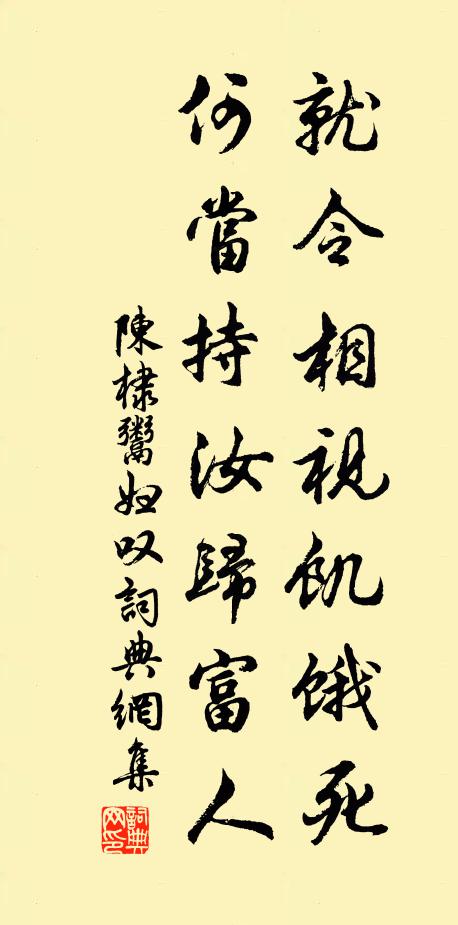 就令相視飢餓死
何當持汝歸富人
陳棣鬻妞叹詞典網集
詞典
网印